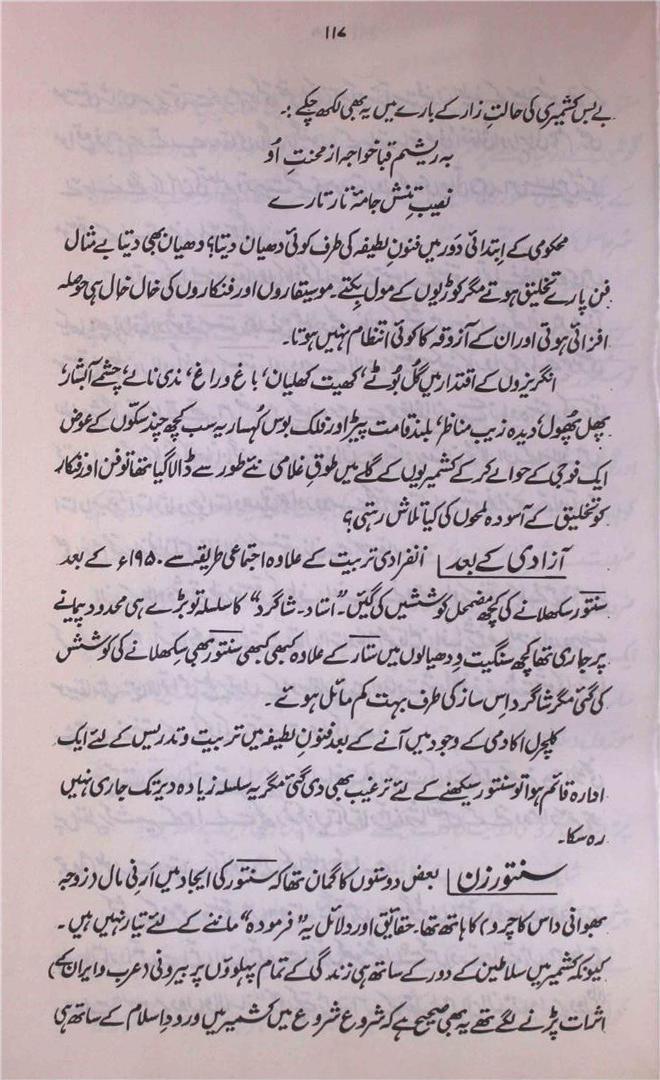 ۱۱۷
بے بس کشمیری کی حالتِ زار کے بارے میں یہ بھی لکھ چکے :۔
بہ ریشم قبا خواجہ از محنتِ اُو
نصیبِ تنش جامۂ تار تارے
محکومی کے ابتدائی دَور میں فنونِ لطیفہ کی طرف کوئی دھیان دیتا؟ دھیان بھی دیتا بے مثال
فن پارے تخلیق ہوتے مگر کوڑیوں کے مول بکتے۔ موسیقاروں اور فنکاروں کی خال خال ہی حوصلہ
افزائی ہوتی اور ان کے آزوقہ کا کوئی انتظام نہیں ہوتا۔
انگریزوں کے اقتدار میں گُل بُوٹے، کھیت کھلیان، باغ و راغ، ندی نالے، چشمے آبشار،
پھل پھُول، دیدہ زیب مناظر، بلند قامت پیڑ اور فلک بوس کُہسار یہ سب کچھ چند سکّوں کے عوض
ایک فوجی کے حوالے کر کے کشمیریوں کے گلے میں طوقِ غلامی نئے طور سے ڈالا گیا تھا تو فن اور فنکار
کو تخلیق کے آسودہ لمحوں کی کیا تلاش رہتی؟
آزادی کے بعد | انفرادی تربیت کے علاوہ اجتماعی طریقہ سے ۱۹۵۰ء کے بعد
سنتور سکھلانے کی کچھ مضمحل کوششیں کی گئیں۔ "استاد۔ شاگرد" کا سلسلہ تو بڑے ہی محدود پیمانے
پر جاری تھا کچھ سنگیت ودھیالوں میں ستار کے علاوہ کبھی کبھی سنتور بھی سکھلانے کی کوشش
کی گئی مگر شاگرد اِس ساز کی طرف بہت کم مائل ہوئے۔
کلچرل اکادمی کے وجود میں آنے کے بعد فنونِ لطیفہ میں تربیت و تدریس کے لئے ایک
ادارہ قائم ہوا تو سنتور سیکھنے کے لئے ترغیب بھی دی گئی مگر یہ سلسلہ زیادہ دیر تک جاری نہیں
رہ سکا۔
سنتور زن | بعض دوستوں کا گمان تھا کہ سنتور کی ایجاد میں اَرنی مال (زوجہ
بھوانی داس کاچرو) کا ہاتھ تھا۔ حقایق اور دلائل یہ "فرمودہ" ماننے کے لئے تیار نہیں ہیں۔
کیونکہ کشمیر میں سلاطین کے دور کے ساتھ ہی زندگی کے تمام پہلوؤں پر بیرونی (عرب و ایران کے)
اثرات پڑنے لگے تھے یہ بھی صحیح ہے کہ شروع شروع میں کشمیر میں ورودِ اسلام کے ساتھ ہی